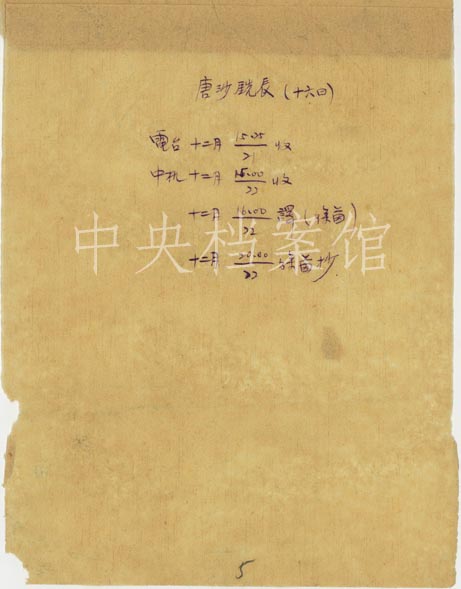 唐沙 長(十六日)
電台 十二月 15.05/21 收
中机 十二月 15.00/22 收
十二月 16.00/22 譯(徐曾)
中央档案馆
十二月 20.00/22 徐曾抄
5